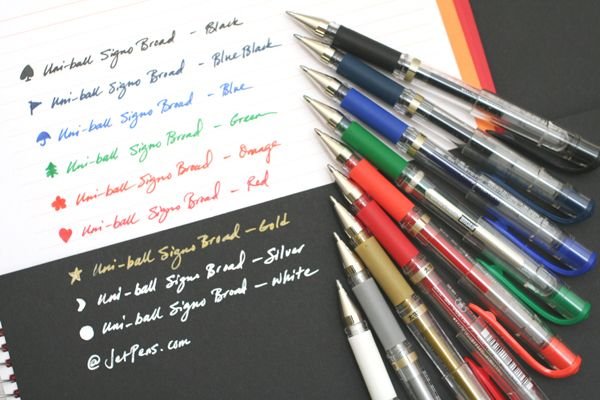 Uni-ball Signo Broad - Black
Uni-ball Signo Broad - Blue Black
Uni-ball Signo Broad - Blue
Uni-ball Signo Broad - Green
Uni-ball Signo Broad - Orange
Uni-ball Signo Broad - Red
Uni-ball Signo Broad - Gold
Uni-ball Signo Broad - Silver
Uni-ball Signo Broad - White
@ JetPens.com